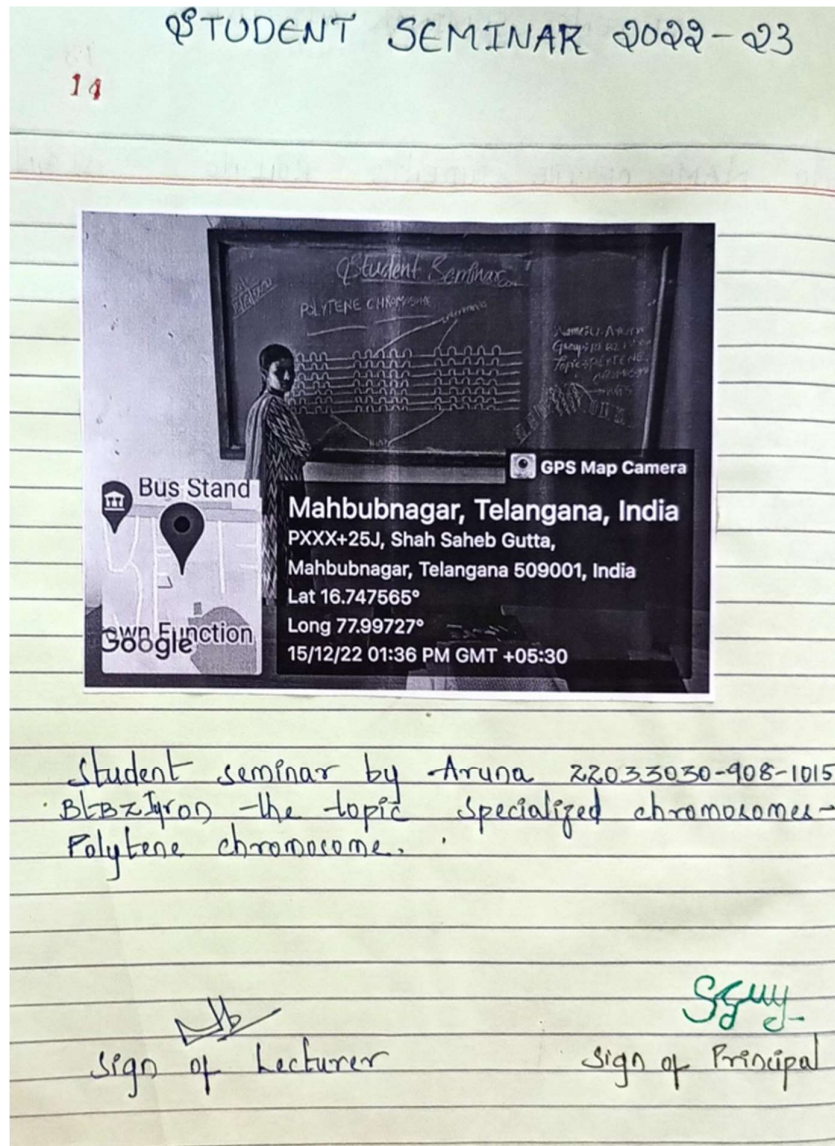 STUDENT SEMINAR 2022-23
14
Student Seminar
POLYTENE CHROMOSOME
Bus Stand
Google
GPS Map Camera
Mahbubnagar, Telangana, India
PXXX+25J, Shah Saheb Gutta,
Mahbubnagar, Telangana 509001, India
Lat 16.747565°
Long 77.99727°
15/12/22 01:36 PM GMT +05:30
Student seminar by Aruna 22033030-908-1015
the topic specialized chromosomes-
Polytene chromosome.
Sign of Lecturer
Sign of Principal